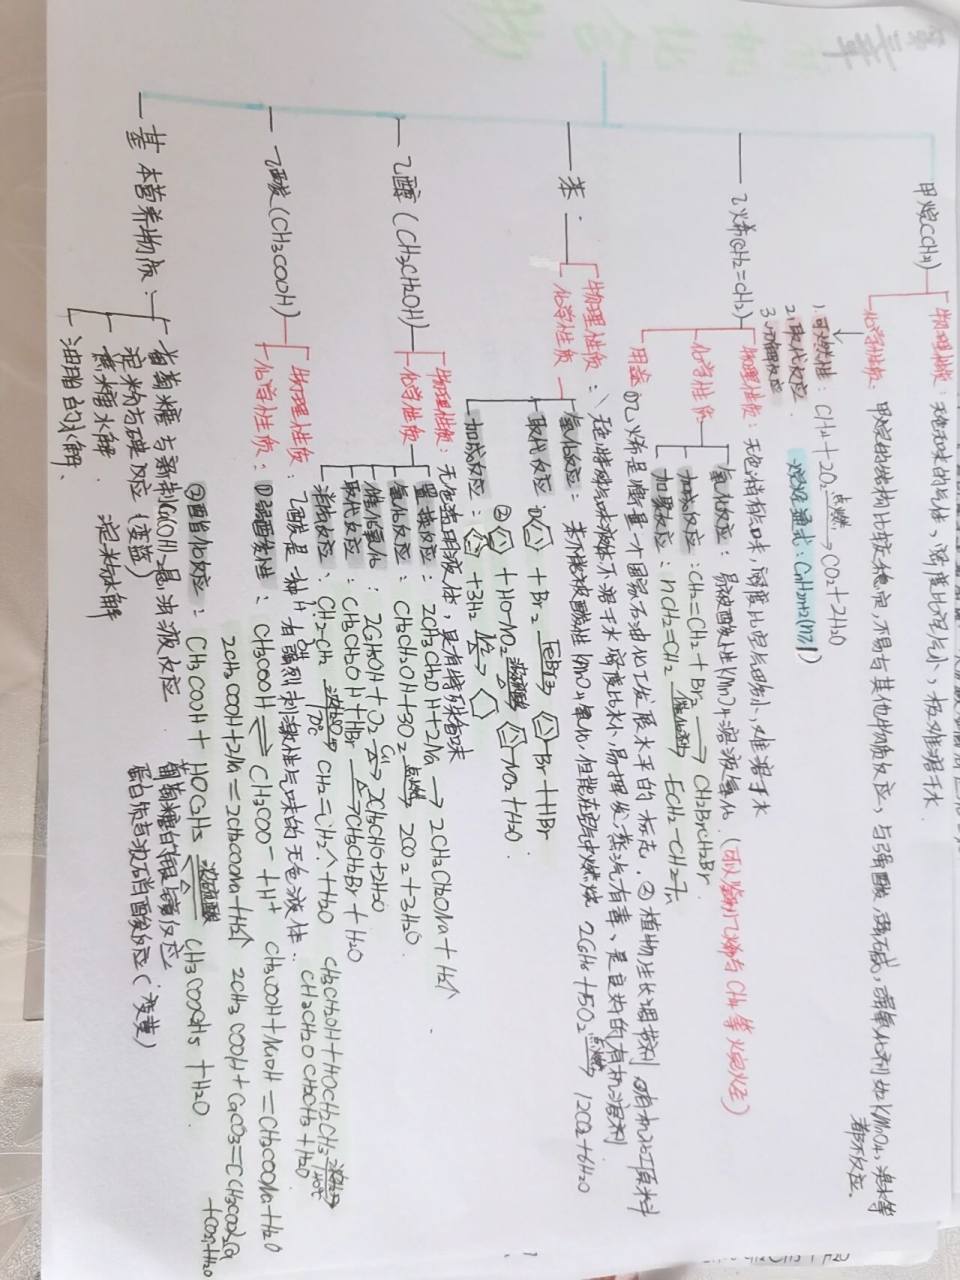 第三章
有机化合物
甲烷(CH4)
物理性质:无色无味的气体,密度比空气小,极难溶于水
化学性质:甲烷的结构比较稳定,不易与其他物质反应,与强酸,强碱,强氧化剂如KMnO4,溴水等
都不反应。
1.可燃性:CH4+2O2 点燃→ CO2+2H2O
2.取代反应
烷烃通式:CnH2n+2(n≥1)
乙烯(CH2=CH2)
物理性质:无色稍有气味,密度比空气略小,难溶于水
化学性质
氧化反应:易被酸性KMnO4溶液氧化(可以鉴别乙烯与CH4等烷烃)
加成反应:CH2=CH2+Br2→CH2BrCH2Br
加聚反应:nCH2=CH2 催化剂→ [CH2-CH2]n
用途 ①乙烯是衡量一个国家石油化工发展水平的标志.②植物生长调节剂,
苯:
物理性质:无色特殊气味液体不溶于水密度比水小,易挥发,蒸汽有毒、是良好的有机溶剂
化学性质
氧化反应:苯不能被酸性KMnO4氧化,但能在空气中燃烧 2C6H6+15O2 点燃→ 12CO2+6H2O
取代反应 ① + Br2 FeBr3→ Br+HBr
② + HO-NO2 浓硫酸 △ NO2+H2O.
加成反应: +3H2 Ni △→
乙醇(CH3CH2OH)
物理性质:无色透明液体,具有特殊香味
化学性质
置换反应:2CH3CH2OH+2Na→2CH3CH2ONa+H2↑
氧化反应:CH3CH2OH+3O2 点燃→ 2CO2+3H2O
催化氧化:
取代反应:CH3CH2OH+HBr △→CH3CH2Br+H2O
CH3CH2OH+HOCH2CH3 浓硫酸 140℃→
CH3CH2OCH2CH3+H2O
消去反应:
浓硫酸 170℃ CH2=CH2↑+H2O
乙酸(CH3COOH)
物理性质:乙酸是一种有强烈刺激性气味的无色液体.
化学性质:
①弱酸性:CH3COOH⇌CH3COO-+H+ CH3COOH+NaOH=CH3COONa+H2O
2CH3COOH+2Na=2CH3COONa+H2↑ 2CH3COOH+CaCO3=(CH3COO)2Ca
+CO2↑+H2O
②酯化反应:CH3COOH+HOC2H5 浓硫酸 △ CH3COOC2H5+H2O.
基本营养物质
葡萄糖与新制Cu(OH)2悬浊液反应 葡萄糖的银镜反应
淀粉与碘反应(变蓝) 蛋白质与浓硝酸反应(变黄)
蔗糖水解 淀粉水解
油脂的水解、